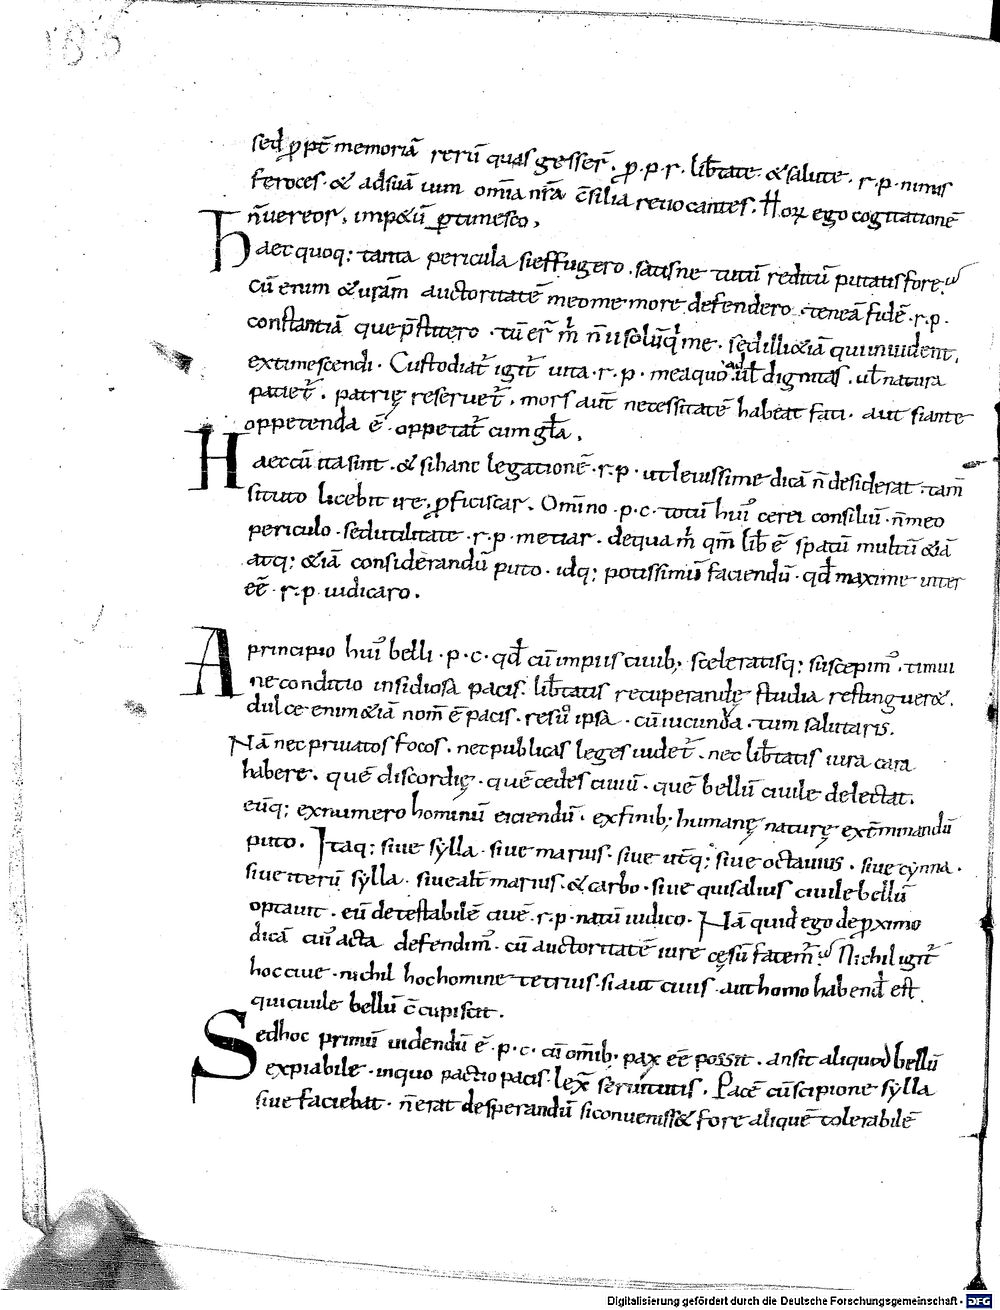 186
sed ꝓpt̄ memoriā rerū quas gesser̄. ꝓ.p.r. lib̄tate. & salute. r.p. nimis
feroces. & adsuā uim om̄ia nr̄a c̄silia reuocantes. Hoꝝ ego cogitationē
n̄uereor. imp&ū ꝑtimesco.
Haec quoq; tanta pericula sieffugero. satisne tutū reditū putatisfore?
Cū enim &urām auctoritatē meomemore defendero. teneā fidē. r.p.
constantiā quep̄stitero. tū er̄ m̄ n̄ iisolū q̄ me. sedilli&iā quiinuident.
extimescendi. Custodiat̄ igit̄ uita. r.p. meaquoad. ul̄ dignitas. ul̄ natura
patiet̄. patrię reseruet̄. mors aut̄ necessitatē habeat fati. aut siante
oppetenda ē. oppetat̄ cum gl̄a.
Haeccū itasint. & sihanc legationē. r.p. utleuissime dicā n̄ desiderat. tam̄
situto licebit ire. ꝓficiscar. Omnino. p.c. totū hui᾽ cerei consiliū. n̄meo
periculo. sedutilitate. r.p. metiar. dequa m̄ qm̄ lib̄ ē spatiū multū &iā
atq; &iā considerandū puto. idq; potissimū faciendū. qd̄ maxime inter
eē. r.p. iudicaro.
A principio hui᾽ belli. p.c. qd̄ cū impiis ciuib; sceleratisq; suscepim᾽. timui
ne conditio insidiosa pacis. lib̄tatis recuperandę studia restinguer&.
dulce enim &iā nom̄ ē pacis. res ū ipsa. cū iucunda. tum salutaris.
Nā nec priuatos focos. nec publicas leges uidet̄. nec lib̄tatis iura cara
habere. quē discordię. quē cedes ciuiū. quē bellū ciuile delectat.
eūq; exnumero hominū eiciendū. exfinib; humanę naturę ext̄minandū
puto. Itaq; siue sylla. siue marius. siue ut̄q; siue octauius. siue cynna.
siue iterū sylla. siue alt̄ marius. & carbo. siue quisalius ciuile bellū
optauit. eū detestabilē ciuē. r.p. natū iudico. Nā quid ego deꝓximo
dicā cui᾽ acta defendim᾽. cū auctoritatē iure cęsū fatem̄? Nichil igit̄
hoc ciue. nichil hochomine tetrius. siaut ciuis. aut homo habend̄ est
quiciuile bellū c̄cupiscit.
Sedhoc primū uidendū ē. p.c. cū om̄ib; pax eē possit. ansit aliquod bellū
expiabile. inquo pactio pacis. lex̄ seruitutis. Pacē cūscipione sylla
siue faciebat. n̄erat desperandū siconueniss& fore aliquē tolerabilē
Digitalisierung gefördert durch die Deutsche Forschungsgemeinschaft - DFG